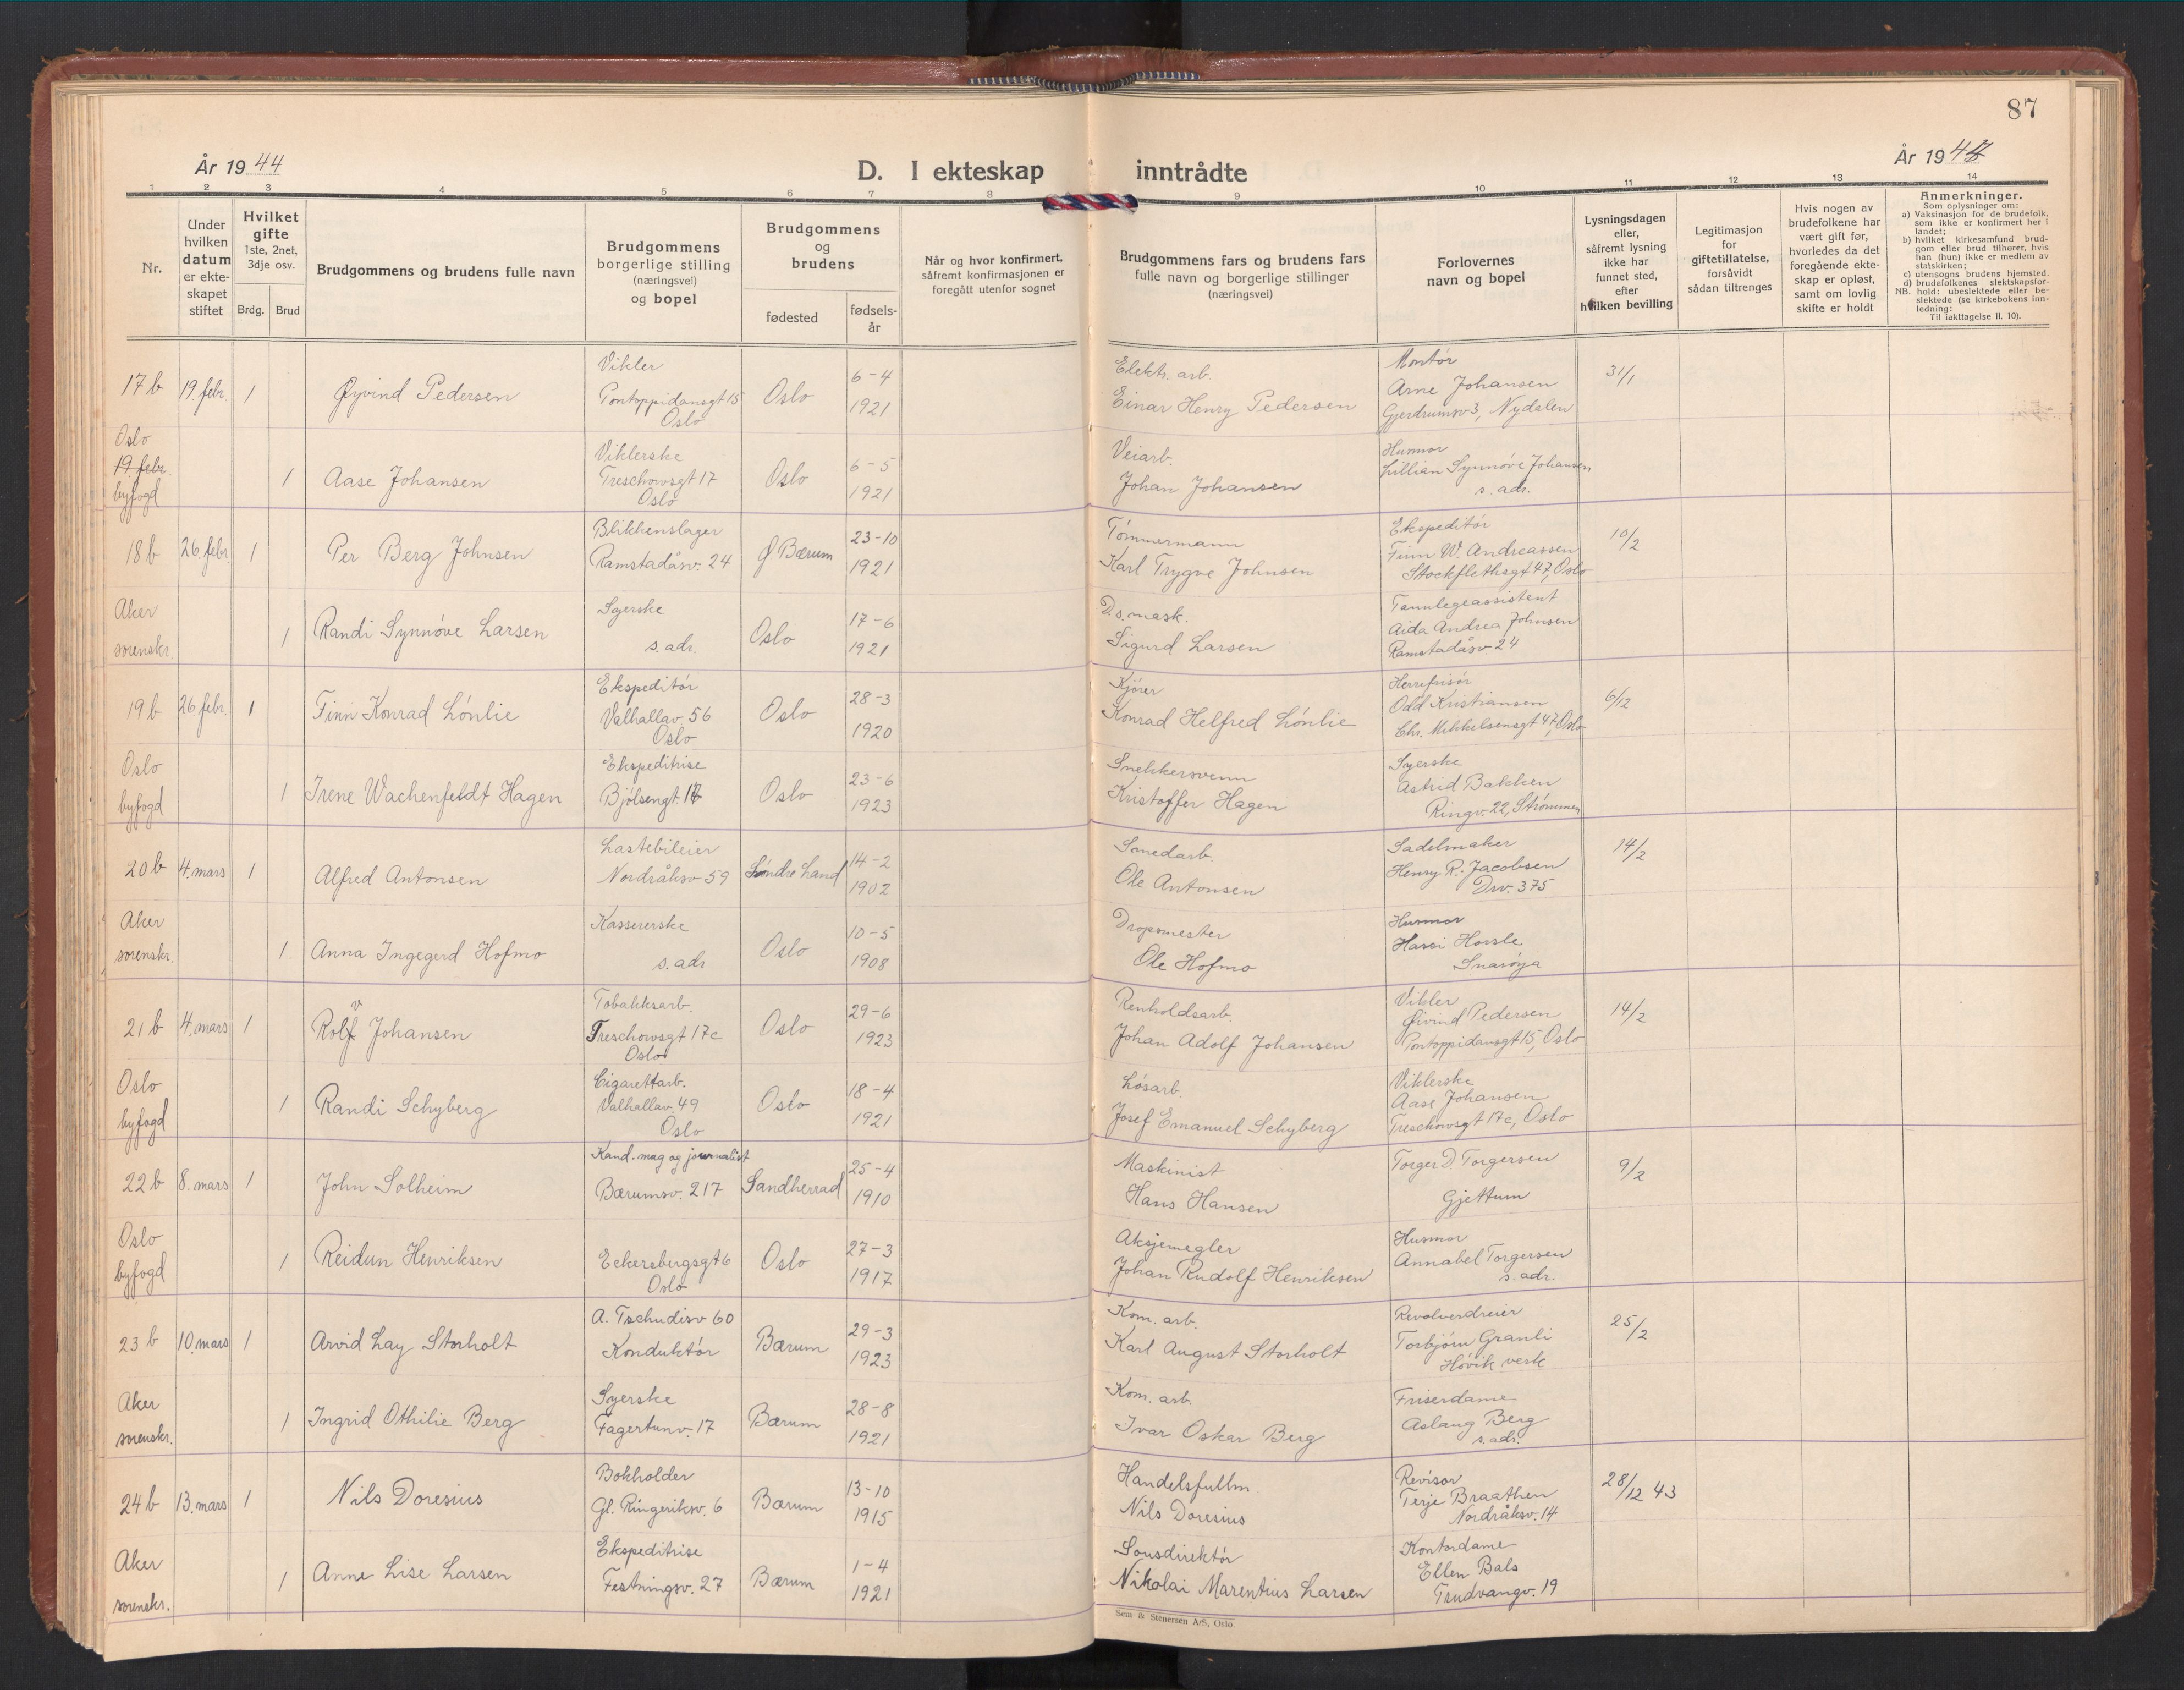 87
År 1944
D. I ekteskap inntrådte
År 1944
1 2 3 4 5 6 7 8 9 10 11 12 13 14
Nr.
Under hvilken datum er ekteskapet stiftet
Hvilket gifte
1ste, 2net, 3dje osv.
Brdg. Brud
Brudgommens og brudens fulle navn
Brudgommens borgerlige stilling (næringsvei) og bopel
Brudgommens og brudens
fødested
fødselsår
Når og hvor konfirmert, såfremt konfirmasjonen er foregått utenfor sognet
Brudgommens fars og brudens fars fulle navn og borgerlige stillinger (næringsvei)
Forlovernes navn og bopel
Lysningsdagen eller, såfremt lysning ikke har funnet sted, efter hvilken bevilling
Legitimasjon for giftetillatelse, forsåvidt sådan tiltrenges
Hvis nogen av brudefolkene har vært gift før, hvorledes da det foregående ekteskap er opløst, samt om lovlig skifte er holdt
Anmerkninger.
Som oplysninger om:
a) Vaksinasjon for de brudefolk, som ikke er konfirmert her i landet;
b) hvilket kirkesamfund brudgom eller brud tilhører, hvis han (hun) ikke er medlem av statskirken;
c) utensogns brudens hjemsted.
d) brudefolkenes slektskapsforhold: ubeslektede eller beslektede (se kirkebokens innledning:
NB. Til iakttagelse II. 10).
17 b 19. febr. 1 Øyvind Pedersen Vikler Pontoppidansgt 15 Oslo Oslo 6-4 1921 Elektr. arb. Einar Henry Pedersen Montör Arne Johansen Gjerdrumsv 3, Nydalen 31/1
Oslo 19. febr. byfogd 1 Aase Johansen Viklerske Treschowsgt 17 Oslo Oslo 6-5 1921 Veiarb. Johan Johansen Husmor Lillian Synnöve Johansen s. adr.
18 b 26. febr. 1 Per Berg Johnsen Blikkenslager Ramstadåsv. 24 Ø. Bærum 23-10 1921 Tömmermann Karl Trygve Johnsen Ekspeditör Finn W. Andreassen Stockflethsgt 47, Oslo 10/2
Aker sorenskr. 1 Randi Synnöve Larsen Syerske s. adr. Oslo 17-6 1921 D.s. mask. Sigurd Larsen Tannlegeassistent Aida Andrea Johnsen Ramstadåsv 24
19 b 26. febr. 1 Finn Konrad Lönlie Ekspeditör Valhallav 56 Oslo Oslo 28-3 1920 Kjörer Konrad Helfred Lönlie Herrefrisör Odd Kristiansen Chr. Mikkelsensgt 47, Oslo 6/12
Oslo byfogd 1 Irene Wachenfeldt Hagen Ekspeditrise Bjölsengt Oslo 23-6 1923 Snekkersvenn Kristoffer Hagen Syerske Astrid Bakken Ringv. 22, Strömmen
20 b 4. mars 1 Alfred Antonsen Lastebileier Nordråksv 59 Söndre Land 14-2 1902 Smedarb. Ole Antonsen Sadelmaker Henry R. Jacobsen Drv. 375 14/2
Aker sorenskr. 1 Anna Ingegerd Hofmo Kassererske s. adr Oslo 10-5 1908 Dropsmester Ole Hofmo Husmor Snaröya
21 b 4. mars 1 Rolf v Johansen Tobakksarb. Treschowsgt 17c Oslo Oslo 29-6 1923 Renholdsarb. Johan Adolf Johansen Vikler Øivind Pedersen Pontoppidansgt 15, Oslo 14/2
Oslo byfogd 1 Randi Schyberg Cigarettarb. Valhallav. 49 Oslo Oslo 18-4 1921 Lösarb. Josef Emanuel Schyberg Viklerske Aase Johansen Treschowsgt 17c, Oslo
22 b 8. mars 1 John Solheim Kand. mag og journalist Bærumsv. 217 Sandherrad 25-4 1910 Maskinist Hans Hansen Torger D. Torgersen Gjettum 9/2
Oslo byfogd 1 Reidun Henriksen Eckersbergsgt 6 Oslo Oslo 27-3 1917 Aksjemegler Johan Rudolf Henriksen Husmor Annabel Torgersen s. adr.
23 b 10. mars 1 Arvid Lay Storholt A. Tschudisv 60 Konduktör Bærum 29-3 1923 Kom. arb. Karl August Storholt Revolverdreier Torbjörn Granli Hövik verk 25/2
Aker sorenskr. 1 Ingrid Othilie Berg Syerske Fagertunv. 17 Bærum 28-8 1921 Kom. arb. Ivar Oskar Berg Friserdame Aslaug Berg s. adr.
24 b 13. mars 1 Nils Doresius Bokholder Gl. Ringeriksv. 6 Bærum 13-10 1915 Handelsfullm. Nils Doresius Revisor Terje Braathen Nordråksv. 14 28/12 43
Aker sorenskr. 1 Anne Lise Larsen Ekspeditrise Festningsv. 27 Bærum 1-4 1921 Sousdirektör Nikolai Marentius Larsen Kontordame Ellen Bals Trudvangv. 19
Sem & Stenersen A/S, Oslo